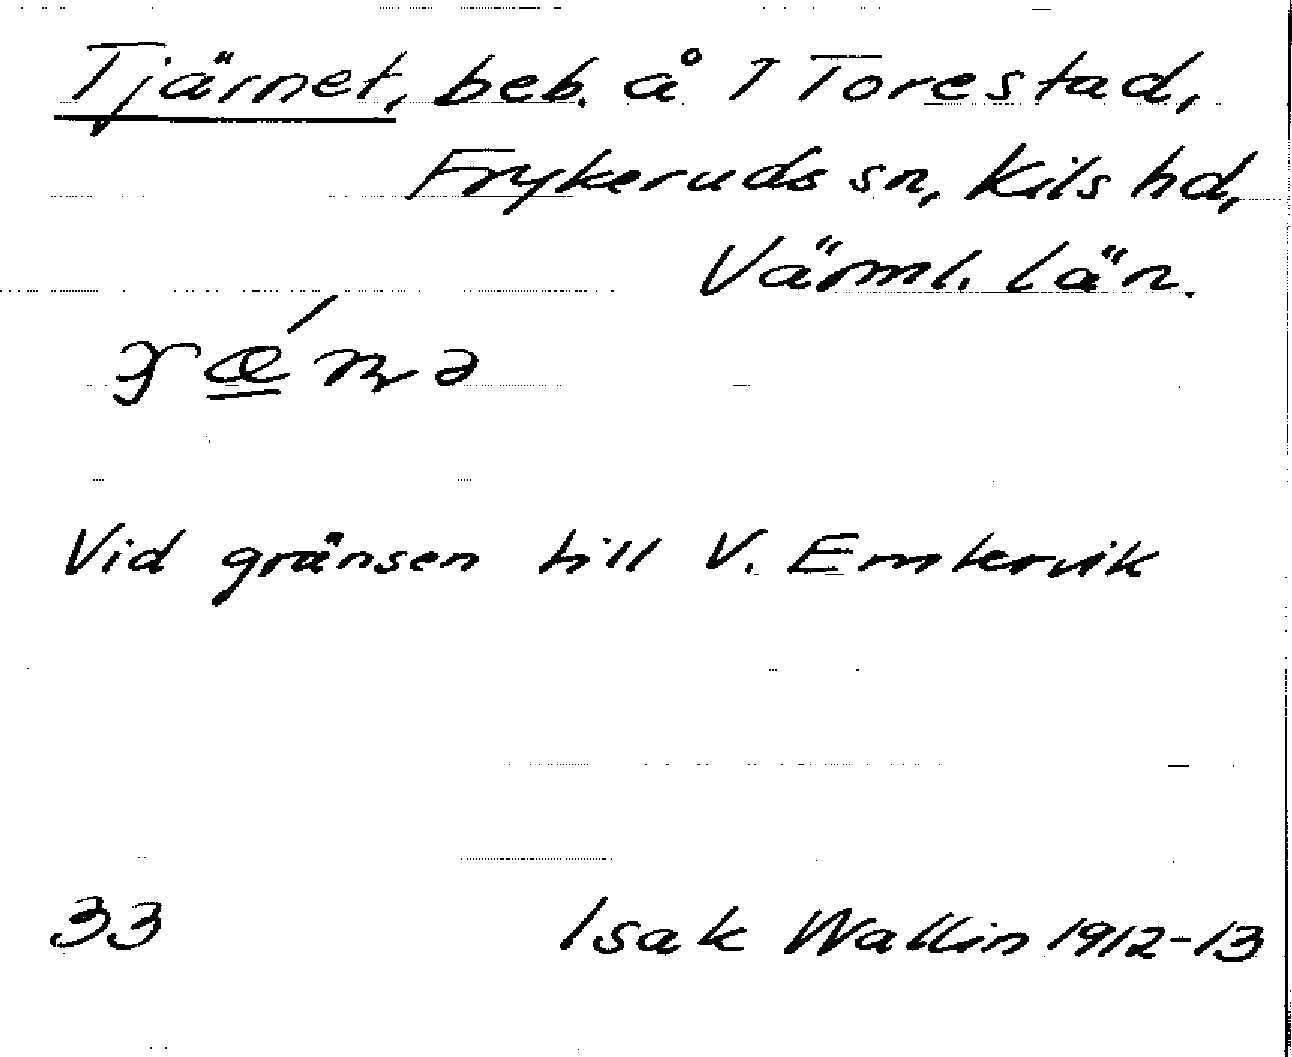 Tjärnet, beb. å 1 Torestad,
Frykeruds sn, Kils hd,
Värml. län.
Vid gränsen till V. Emtervik
33 Isak Wallin 1912-13